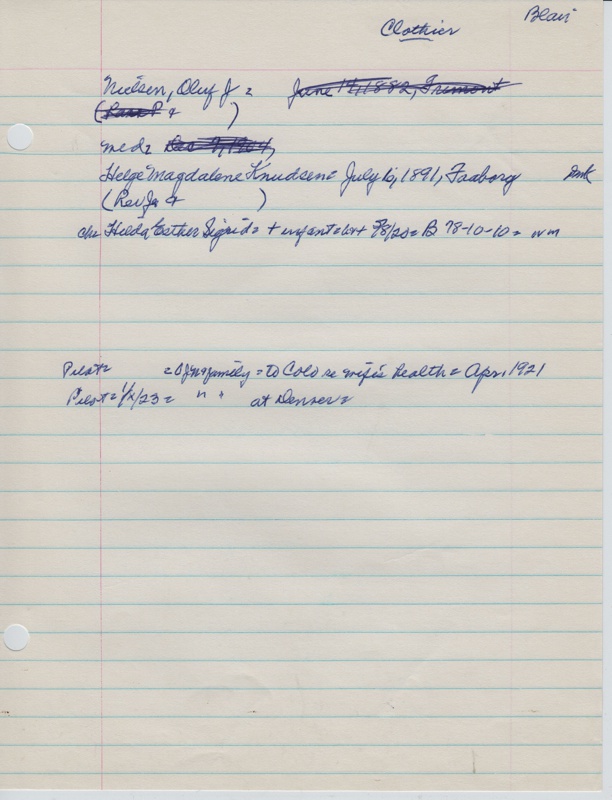 Blair
Clothier
Nielsen, Oluf J = June 14, 1882, Fremont
(Lars P + )
med= Dec 9, 1904,
Helge Magdalone Knudsen= July 6, 1891, Faaborg Dmk
(Rev J + )
ch= Hilda Esther Sigrid= + infant = + 7/8/20= B 78-10-10= nm
Pilot= = OJN+family = to Colo re wife's health = Apr, 1921
Pilot= 1/2/23= " " at Denver=